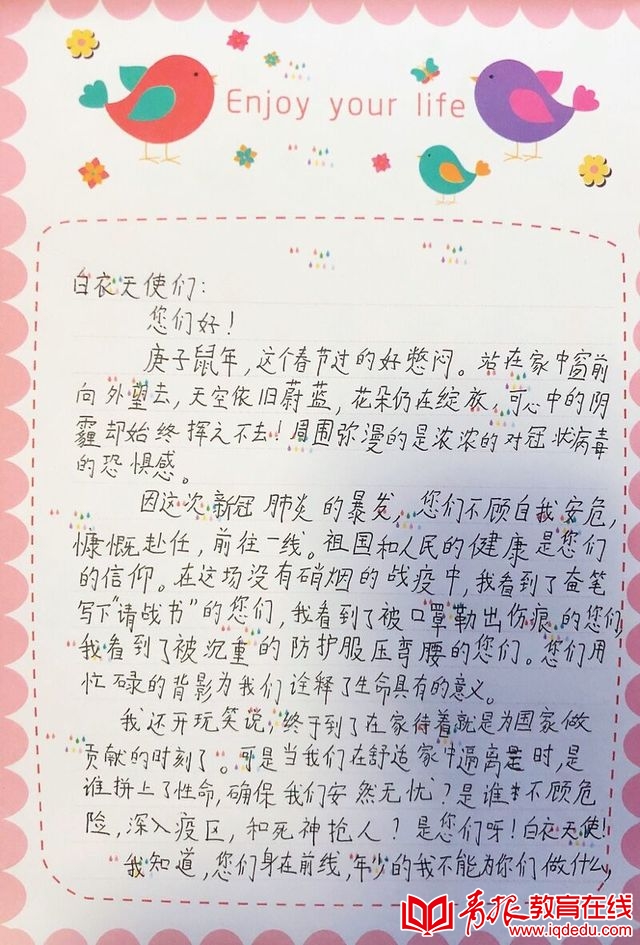 Enjoy your life
白衣天使们：
您们好！
庚子鼠年，这个春节过的好憋闷。站在家中窗前
向外望去，天空依旧蔚蓝，花朵仍在绽放，可心中的阴
霾却始终挥之不去！周围弥漫的是浓浓的对冠状病毒
的恐惧感。
因这次新冠肺炎的暴发，您们不顾自我安危，
慷慨赴任，前往一线。祖国和人民的健康是您们
的信仰。在这场没有硝烟的战疫中，我看到了奋笔
写下“请战书”的您们，我看到了被口罩勒出伤痕的您们，
我看到了被沉重的防护服压弯腰的您们。您们用
忙碌的背影为我们诠释了生命具有的意义。
我还开玩笑说，终于到了在家待着就是为国家做
贡献的时刻了。可是当我们在舒适家中隔离是时，是
谁拼上了性命，确保我们安然无忧？是谁不顾危
险，深入疫区，和死神抢人？是您们呀！白衣天使！
我知道，您们身在前线，年少的我不能为你们做什么，
青报教育在线
www.iqdedu.com